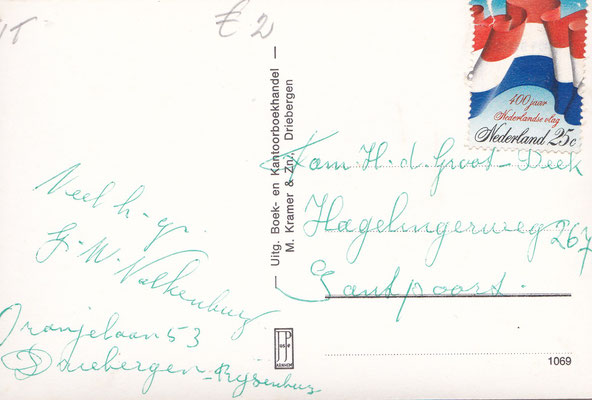 € 2
400 jaar
Nederlandse vlag
Nederland 25c
Uitg. Boek- en Kantoorboekhandel
M. Kramer & Zn., Driebergen
Fam H. d. Groot-Beek
Hagelingerweg 267
Santpoort.
Veel h-gr.
W. Valkenburg
Oranjelaan 53
Driebergen-Rijsenburg
1069